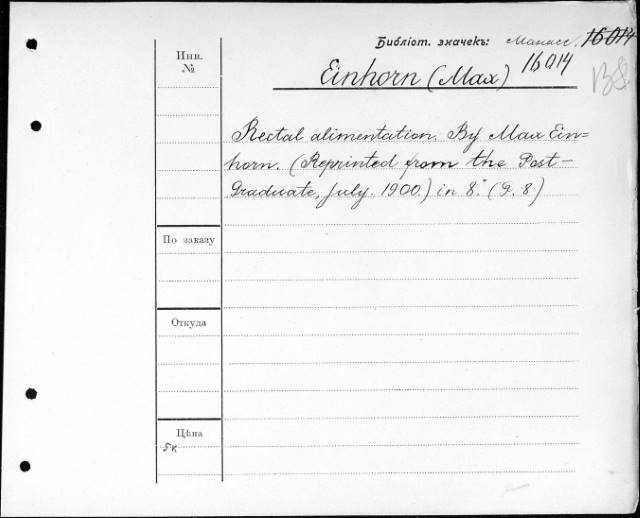 Библіот. значекъ: Манасс. 16014
Инв.
№
Einhorn (Max) 16014
Rectal alimentation. By Max Ein=
horn. (Reprinted from the Post-
Graduate, July. 1900.) in 8.° (P. 8)
По заказу
Откуда
Цѣна
5к